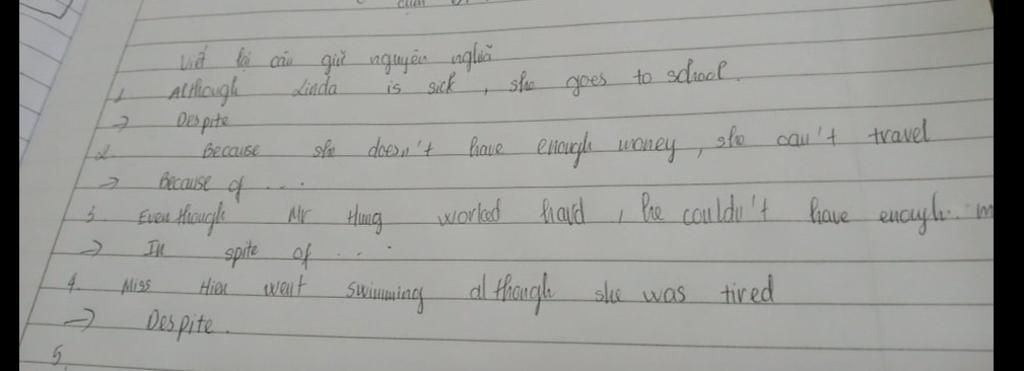 Viết lại câu giữ nguyên nghĩa
1. Although Linda is sick, she goes to school.
→ Despite
2. Because she doesn't have enough money, she can't travel
→ Because of ....
3. Eventhough Mr Hung worked hard, he couldn't have enough m
→ In spite of ...
4. Miss Hien went swimming although she was tired
→ Despite.
5